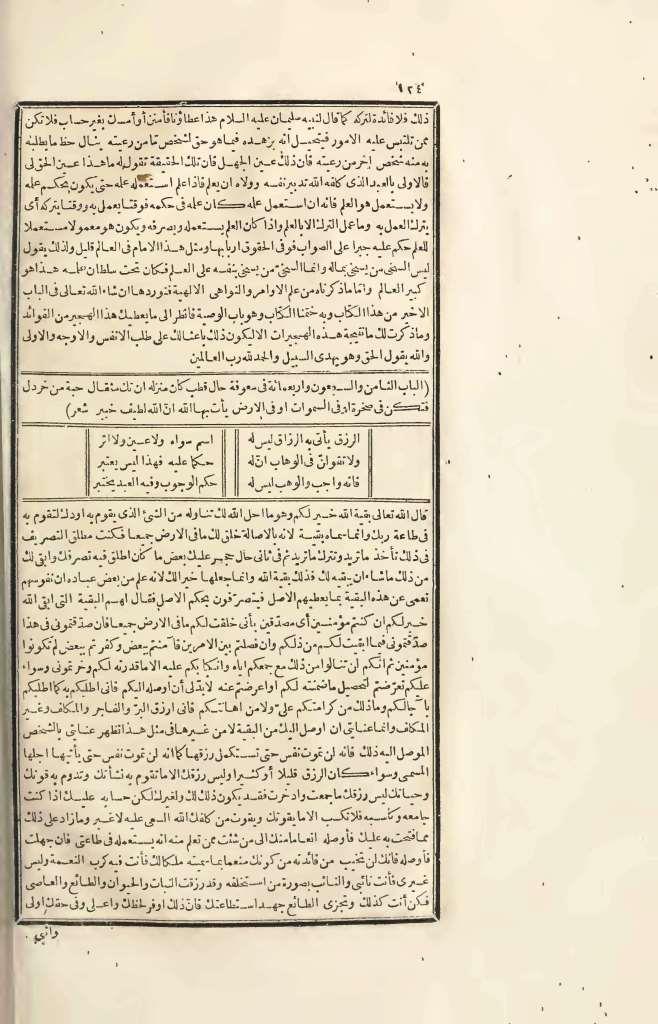 ١٢٤
ذلك فلا فائدة لتركه كما قال لنبيه سليمان عليه السلام هذا عطاؤنا فامنن أو أمسك بغير حساب فلا تكن
ممن تلتبس عليه الامور فيتخيل أنه بزهده فيما هو حق لشخص تما من رعيته ينال حظ ما يطلبه
به منه شخص آخر من رعيته فان ذلك عين الجهل فان تلك الحقيقة تقول له ما هذا عين الحق لى
فالاولى بالعبد الذى كلفه الله تدبير نفسه وولاه ان يعلم فاذا علم استعمله علمه حتى يكون بحكم علمه
ولا يستعمل هو العلم فانه ان استعمل علمه كان علمه فى حكمه فوقتا يعمل به ووقتا يتركه أى
يترك العمل به وما عمل الترك الا بالعلم واذا كان العلم يستعمله ويصرفه ويكون هو معمولا مستعملا
للعلم حكم عليه جبرا على الصواب فوفى الحقوق اربابها ومثل هذا الامام فى العالم قليل ولذلك يقول
ليس السخى من يسخى بماله وانما السخىّ من يسخى بنفسه على العلم فكان تحت سلطان علمه هذا هو
كبير العالم وأما ما ذكرناه من علم الاوامر والنواهى الالهية فنوردها ان شاء الله تعالى فى الباب
الاخير من هذا الكتاب وبه ختمنا الكتاب وهو باب الوصية فانظر الى ما يعطيك هذا الهجير من الفوائد
وما ذكرت لك ما نتيجة هذه الهجيرات الا ليكون ذلك باعثا لك على طلب الانفس والاوجه والاولى
والله يقول الحق وهو يهدى السبيل والحمد لله رب العالمين
(الباب الثامن والسبعون واربعمائة فى معرفة حال قطب كان منزله ان تك مثقال حبة من خردل
فتكن فى صخرة أو فى السموات او فى الارض يأت بها الله انّ الله لطيف خبير شعر)
الرزق يأتى به الرزاق ليس له اسم سواه ولا عين ولا اثر
ولا تقولنّ فى الوهاب انّ له حكما عليه فهذا ليس يعتبر
فانه واجب والوهب ليس له حكم الوجوب وفيه العبد يختبر
قال الله تعالى بقية الله خير لكم وهو ما احل الله لك تناوله من الشئ الذى يقوم به أودك لتقوم به
فى طاعة ربك وانما سماه بقية لانه بالاصالة خلق لك ما فى الارض جميعا فكنت مطلق التصريف
فى ذلك تأخذ ما تريد وتترك ما تريد ثم فى ثانى حال حجر عليك بعض ما كان اطلق فيه تصرفك وابقى لك
من ذلك ما شاء ان يبقيه لك فذلك بقية الله وانما جعلها خيرا لك لانه علم من بعض عباده ان نفوسهم
تعمى عن هذه البقية بما يعطيهم الاصل فيتصرفون بحكم الاصل فقال لهم البقية التى ابقى الله
خير لكم ان كنتم مؤمنين أى مصدّقين بأنى خلقت لكم ما فى الارض جميعا فان صدّقتمونى فى هذا
صدّقتمونى فيما ابقيت لكم من ذلكم وان فصلتم بين الامرين فآمنتم ببعض وكفرتم ببعض لم تكونوا
مؤمنين ثم انّكم لن تنالوا من ذلك مع جمعكم اياه وانكبابكم عليه الا ما قدرته لكم وحرمتمونى وسواء
عليكم تعرّضتم لتحصيل ما ضمنته لكم أو اعرضتم عنه لا بدّ لى أن أوصله اليكم فانى اطلبكم به كما اطلبكم
بآجالكم وما ذلك من كرامتكم علىّ ولا من اهانتكم فانى ارزق البرّ والفاجر والمكلف وغير
المكلف وانما عنايتى ان اوصل اليك من البقية لا من غيرها فى مثل هذا تظهر عنايتى بالشخص
الموصل اليه ذلك فانه لن تموت نفس حتى تستكمل رزقها كما انه لن تموت نفس حتى يأتيها اجلها
المسمى وسواء كان الرزق قليلا أو كثيرا وليس رزقك الا ما تقوم به نشأتك وتدوم به قوتك
وحياتك ليس رزقك ما جمعت وادّخرت فقد يكون ذلك لك ولغيرك لكن حسابه عليك اذا كنت
جامعه وكاسبه فلا تكسب الا ما يقوتك ويقوت من كلفك الله السعى عليه لا غير وما زاد على ذلك
مما فتحت به عليك فأوصله انعاما منك الى من شئت ممن تعلم منه انه يستعمله فى طاعتى فان جهلت
فأوصله فانك لن تخيب من فائدته من كونك منعما بما سميته ملكا لك فأنت فيه كرب النعمة وليس
غيرى فأنت نائبى والنائب بصورة من استخلفه وقد رزقت النبات والحيوان والطائع والعاصى
فكن أنت كذلك وتحرّى الطائع جهد استطاعتك فانّ ذلك اوفر لحظك واعلى وفى حقك اولى
واثنى